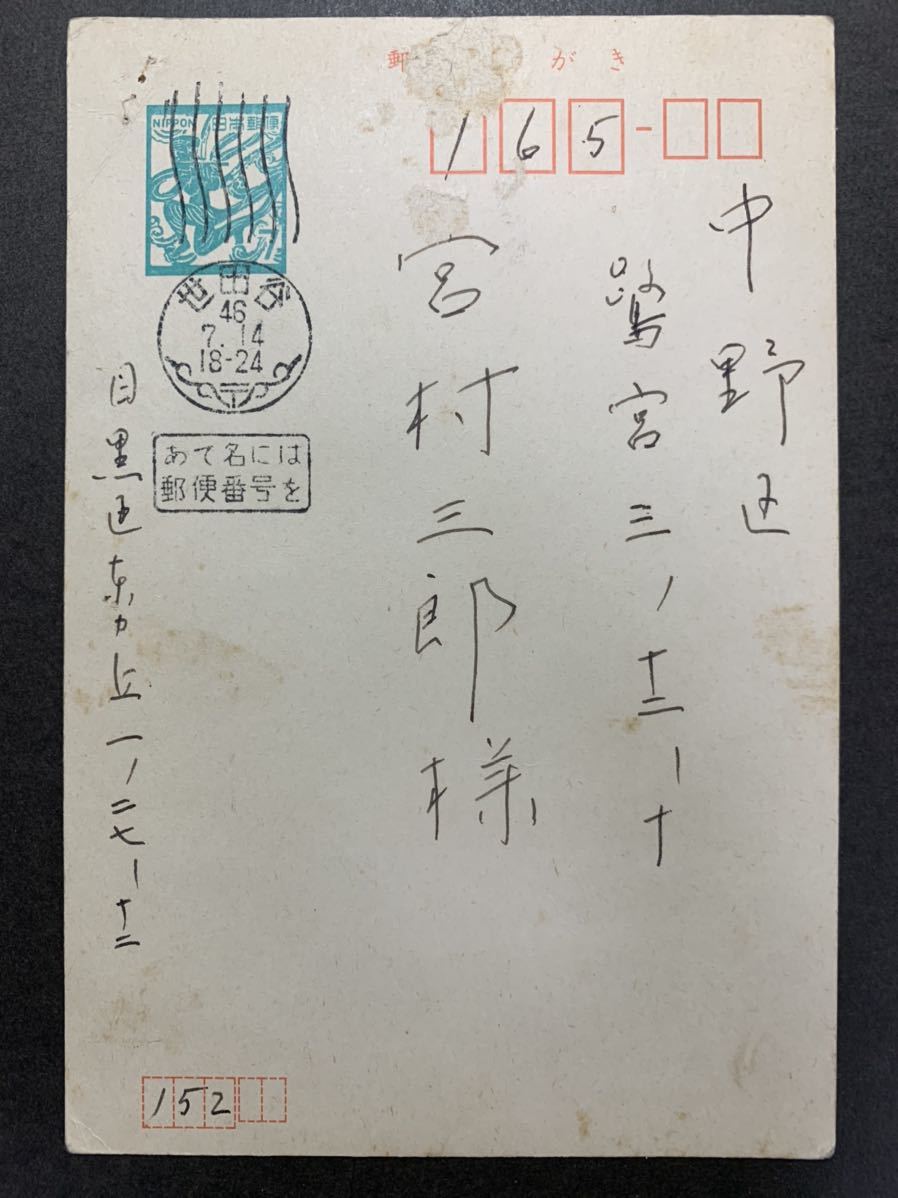 郵 がき
165-
中野区
鷺宮三ノ十二ー十
宮村三郎様
NIPPON 日本郵便
世田谷
46
7.14
18-24
あて名には
郵便番号を
目黒区東ヵ丘一ノ二七ー十二
152